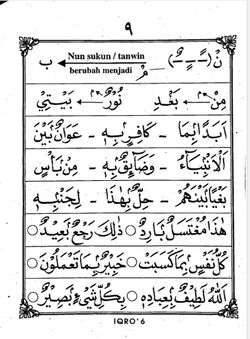 ٩
نْ (ــًــٍــٌ) Nun sukun / tanwin ب
berubah menjadi
مْ
مِنْ بَعْدِ نُوْرٌ بَيْتِيْ
اَبَدًا بِمَا - كَافِرٍ بِهِ - عَوَانٌ بَيْنَ
اَلْاَنْبِيَاءُ - وَضَائِقٌ بِهِ - مِنْ بَأْسِ
بَغْيًا بَيْنَهُمْ - حِلٌّ بِهٰذَا - لِجَنْبِهِ
هٰذَا مُغْتَسَلٌ بَارِدٌ ○ ذٰلِكَ رَجْعٌ بَعِيْدٌ ○
كُلُّ نَفْسٍ بِمَا كَسَبَتْ ○ خَبِيْرٌ بِمَا تَعْمَلُوْنَ ○
اَللهُ لَطِيْفٌ بِعِبَادِهِ ○ بِكُلِّ شَيْءٍ بَصِيْرٌ ○
IQRO' 6